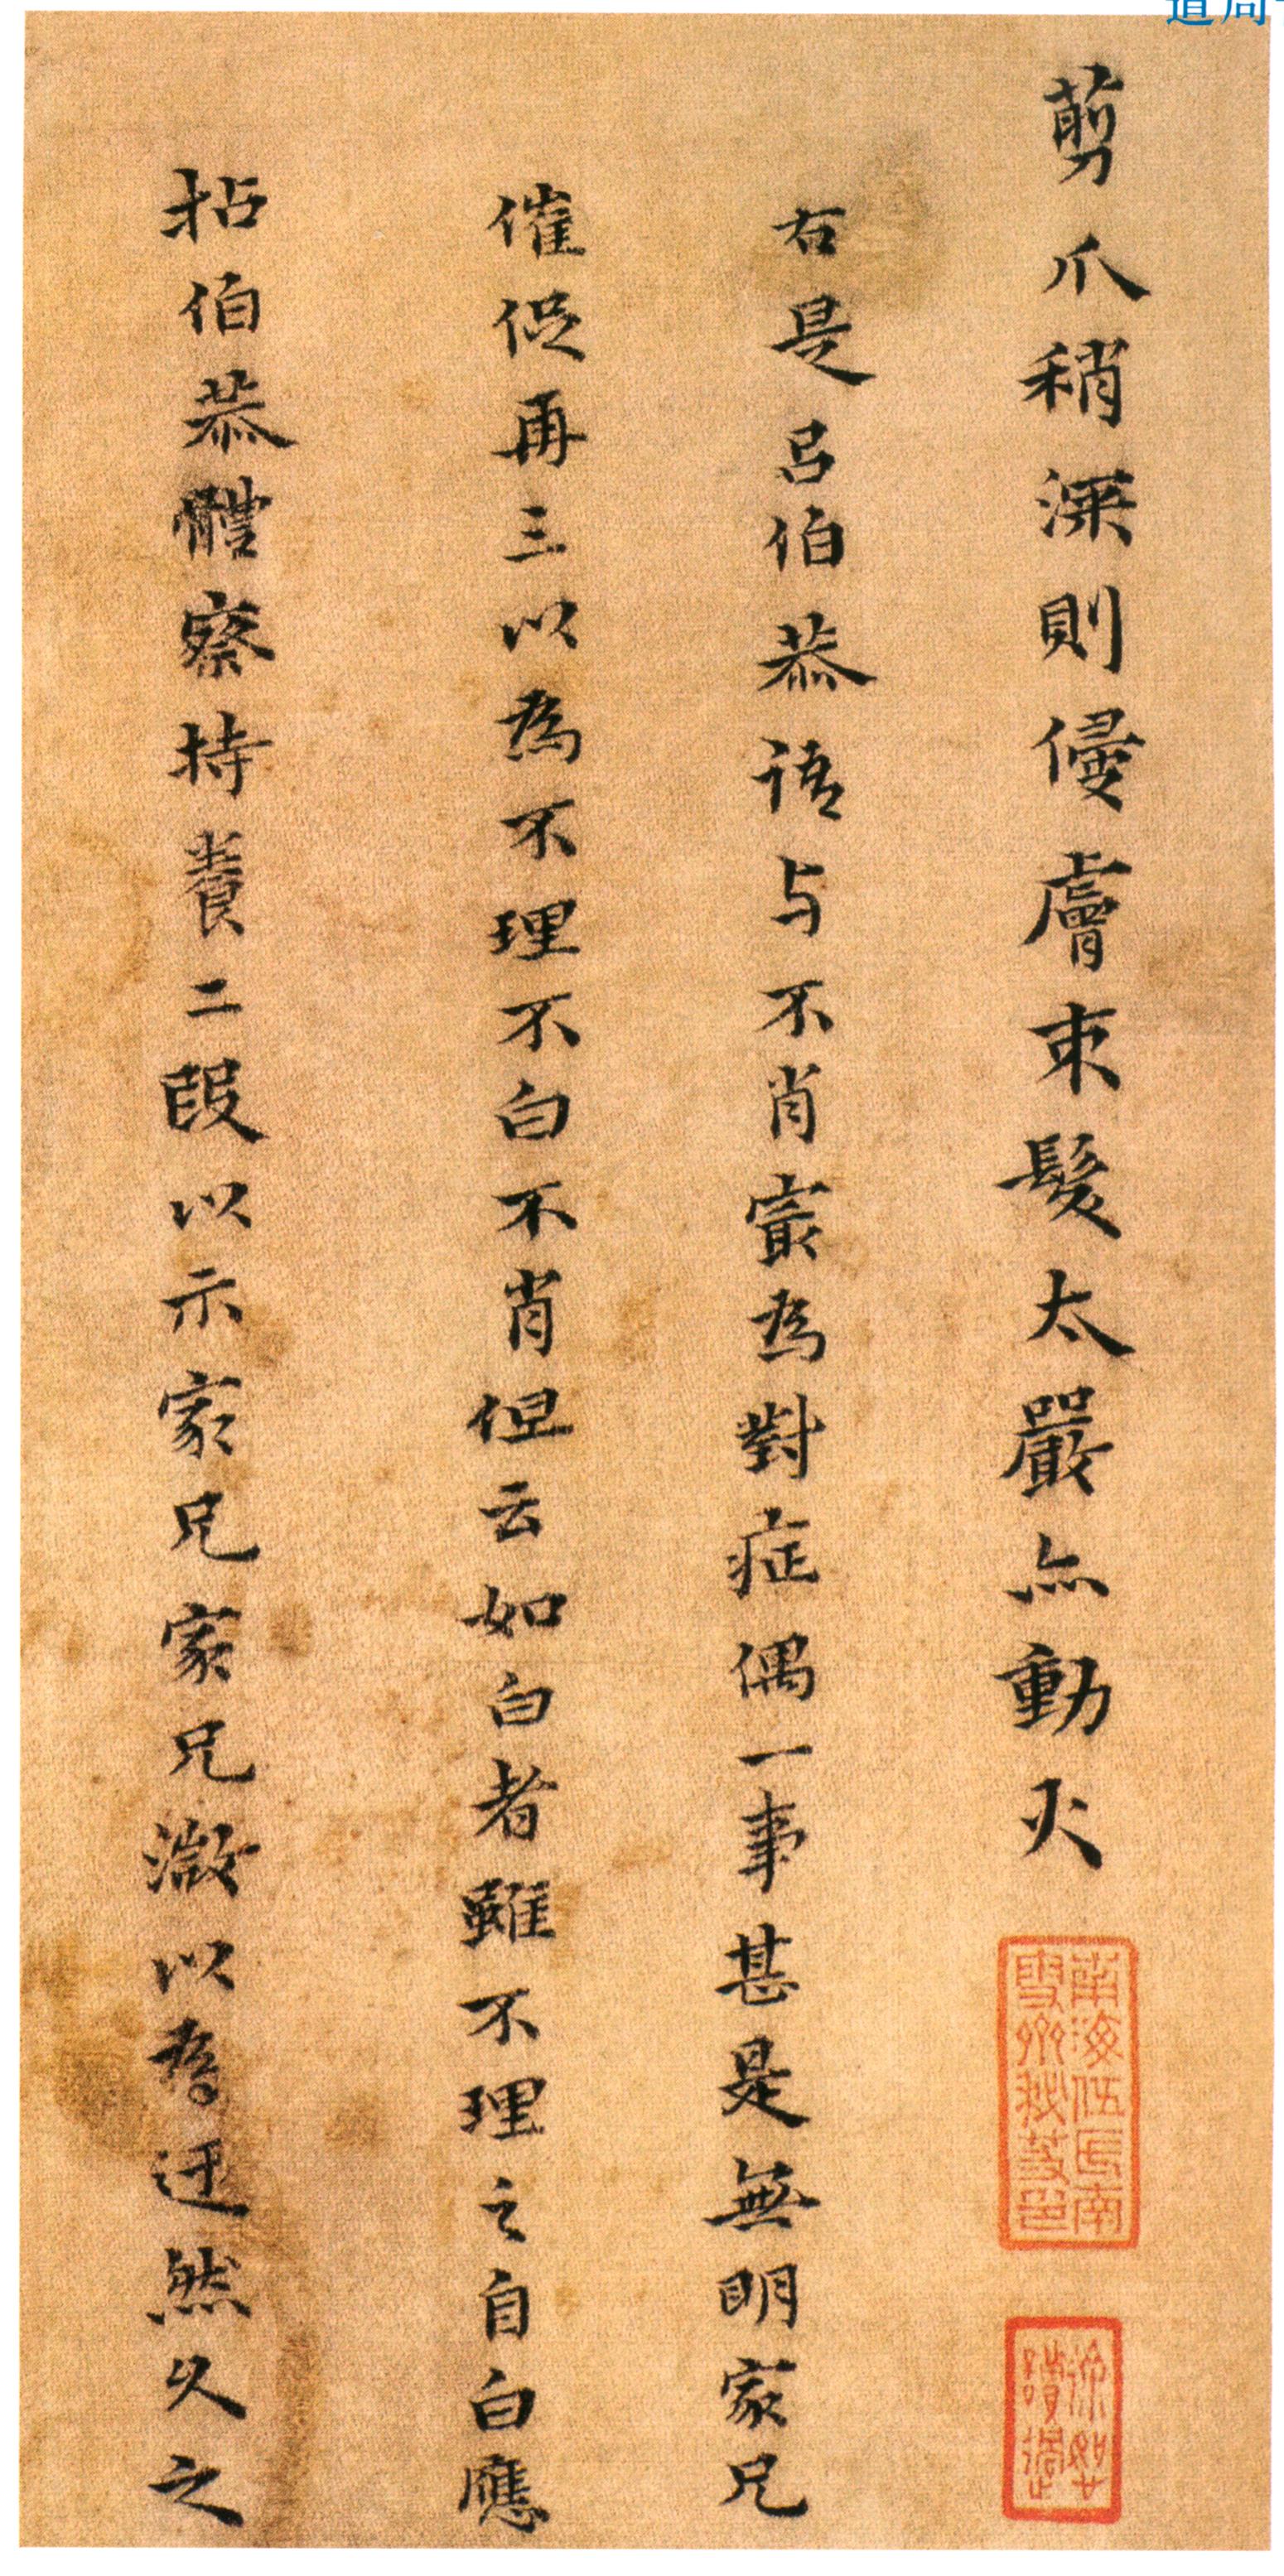 剪爪稍深則侵膚束髮太嚴亦動火
右是呂伯恭語与不肖宲為對症偶一事甚是無明家兄
催促再三以為不理不白不肖但云如白者雖不理之自白應
拈伯恭體察持養二段以示家兄家兄激以為迂然久之
南海伍氏南
雪齋秘笈印
讀過